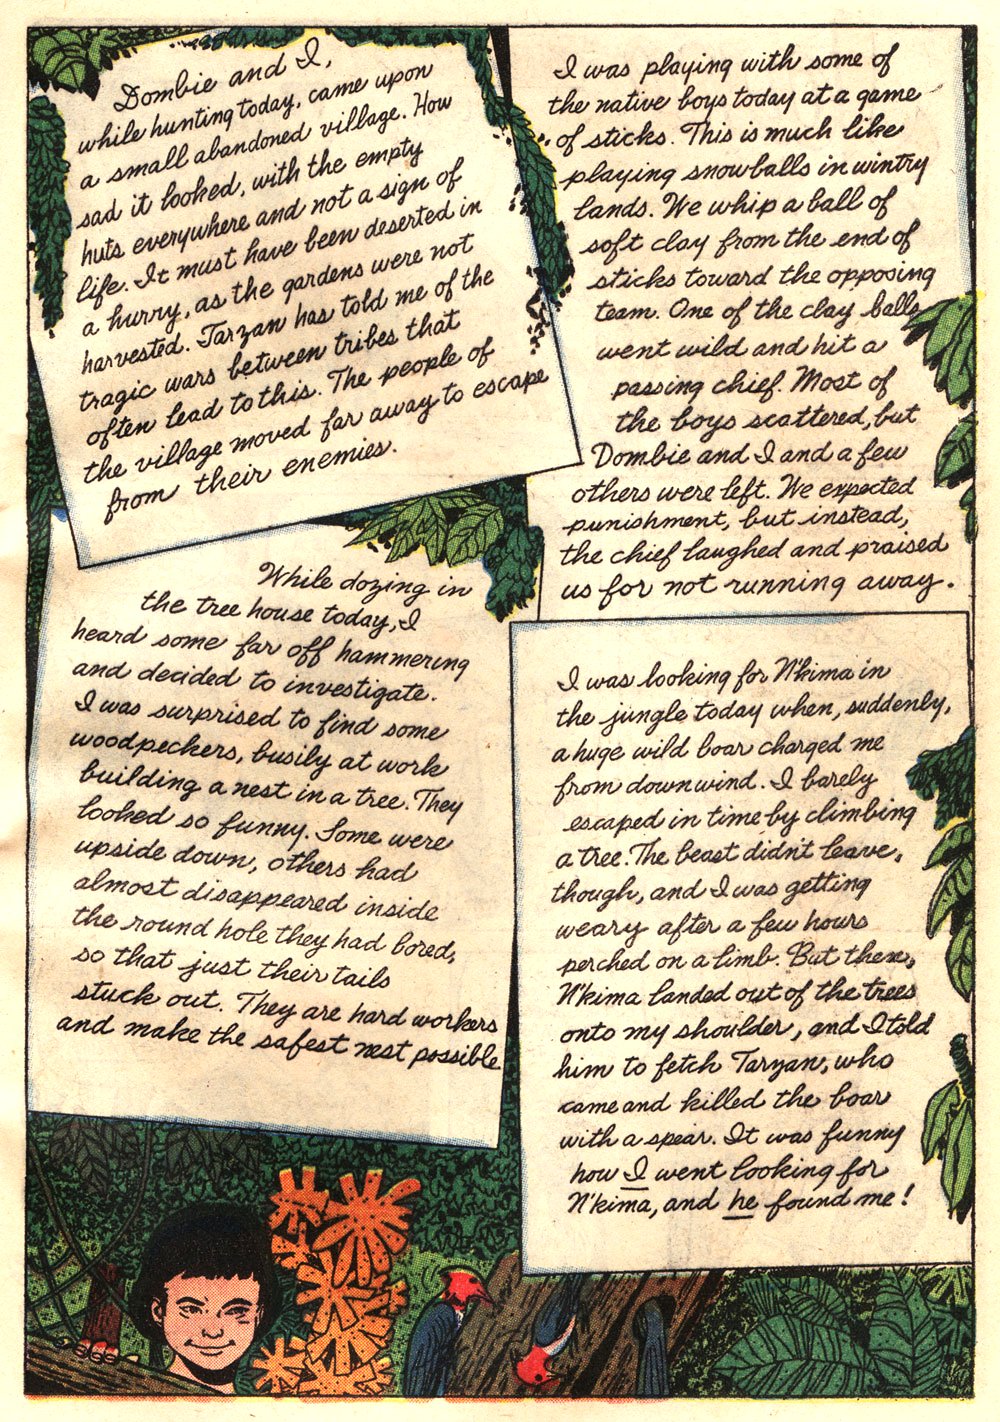 Dombie and I,
while hunting today, came upon
a small abandoned village. How
sad it looked, with the empty
huts everywhere and not a sign of
life. It must have been deserted in
a hurry, as the gardens were not
harvested. Tarzan has told me of the
tragic wars between tribes that
often lead to this. The people of
the village moved far away to escape
from their enemies.
While dozing in
the tree house today, I
heard some far off hammering
and decided to investigate.
I was surprised to find some
woodpeckers, busily at work
building a nest in a tree. They
looked so funny. Some were
upside down, others had
almost disappeared inside
the round hole they had bored,
so that just their tails
stuck out. They are hard workers
and make the safest nest possible.
I was playing with some of
the native boys today at a game
of sticks. This is much like
playing snowballs in wintry
lands. We whip a ball of
soft clay from the end of
sticks toward the opposing
team. One of the clay balls
went wild and hit a
passing chief. Most of
the boys scattered, but
Dombie and I and a few
others were left. We expected
punishment, but instead,
the chief laughed and praised
us for not running away.
I was looking for N'kima in
the jungle today when, suddenly,
a huge wild boar charged me
from downwind. I barely
escaped in time by climbing
a tree. The beast didn't leave,
though, and I was getting
weary after a few hours
perched on a limb. But then,
N'kima landed out of the trees
onto my shoulder, and I told
him to fetch Tarzan, who
came and killed the boar
with a spear. It was funny
how I went looking for
N'kima, and he found me!